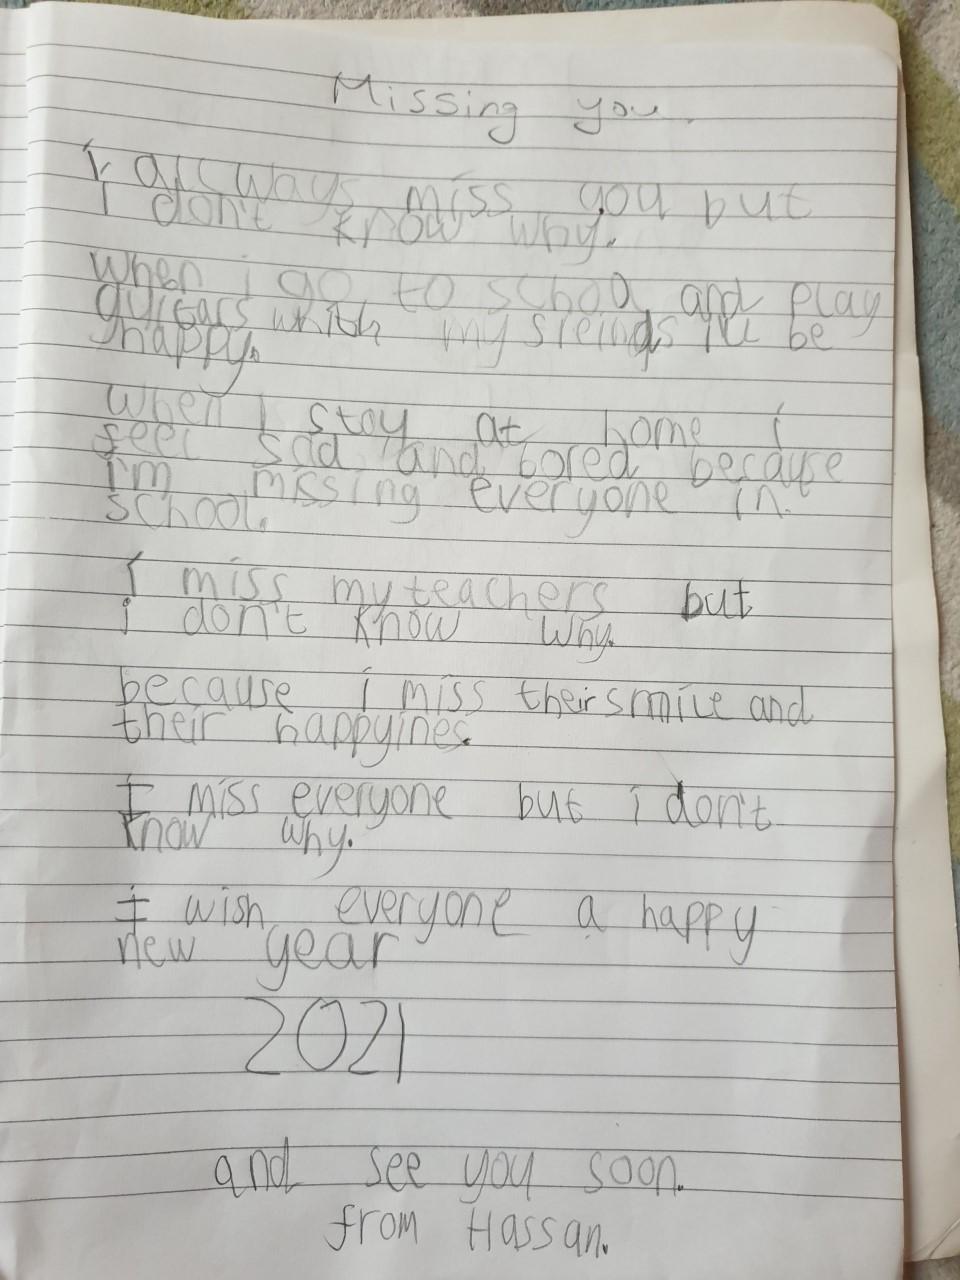 Missing you.
I always miss you but
I don't know why.
When i go to school and play
guitars with my freinds i'll be
happy.
When I stay at home i
feel sad and bored because
i'm missing everyone in
school.
I miss my teachers but
i don't know why.
because i miss their smile and
their happyines.
I miss everyone but i don't
know why.
I wish everyone a happy
new year
2021
and see you soon.
from Hassan.